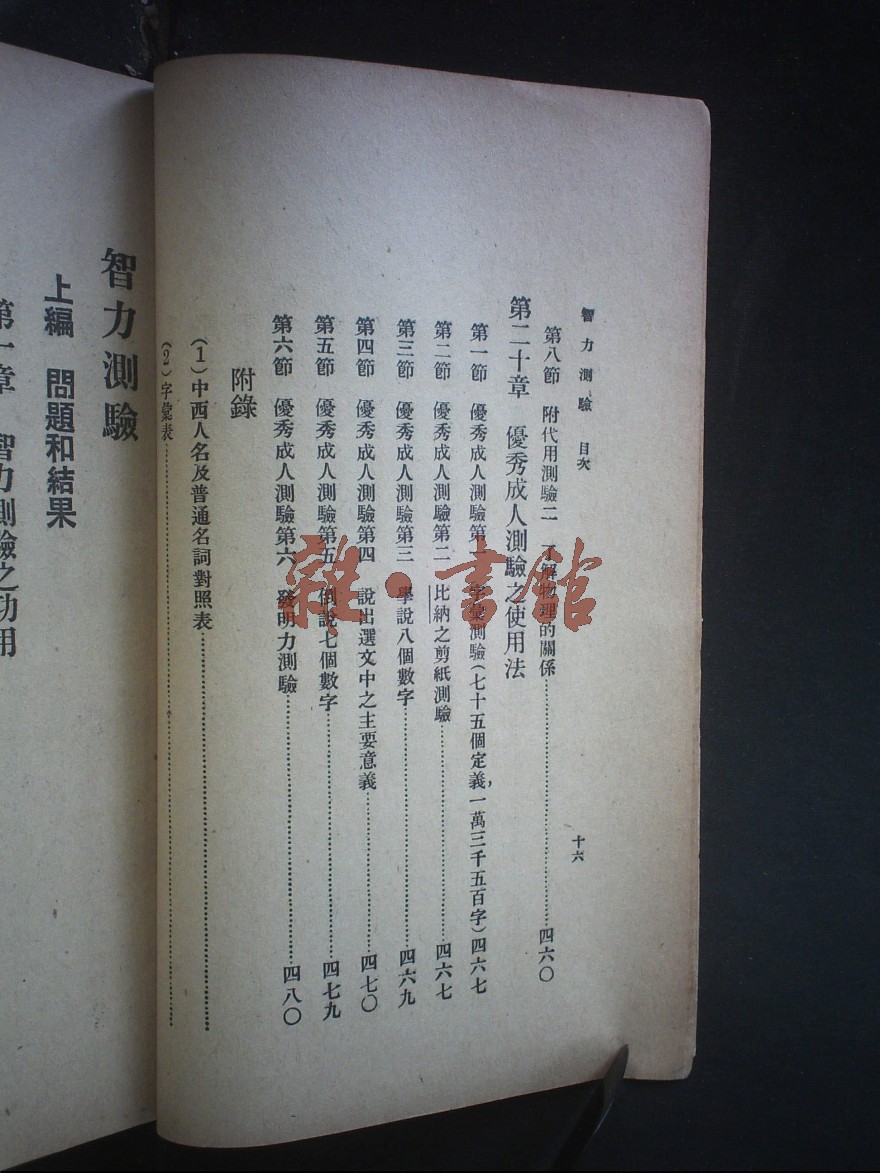 智力測驗 目次 十六
第八節 附代用測驗二 了解物理的關係 四六〇
第二十章 優秀成人測驗之使用法
第一節 優秀成人測驗第一 字彙測驗(七十五個定義,一萬三千五百字)四六七
第二節 優秀成人測驗第二 比納之剪紙測驗 四六七
第三節 優秀成人測驗第三 學說八個數字 四六九
第四節 優秀成人測驗第四 說出選文中之主要意義 四七〇
第五節 優秀成人測驗第五 倒說七個數字 四七九
第六節 優秀成人測驗第六 發明力測驗 四八〇
附錄
(1)中西人名及普通名詞對照表
(2)字彙表
智力測驗
上編 問題和結果
第一章 智力測驗之功用
雜·書館